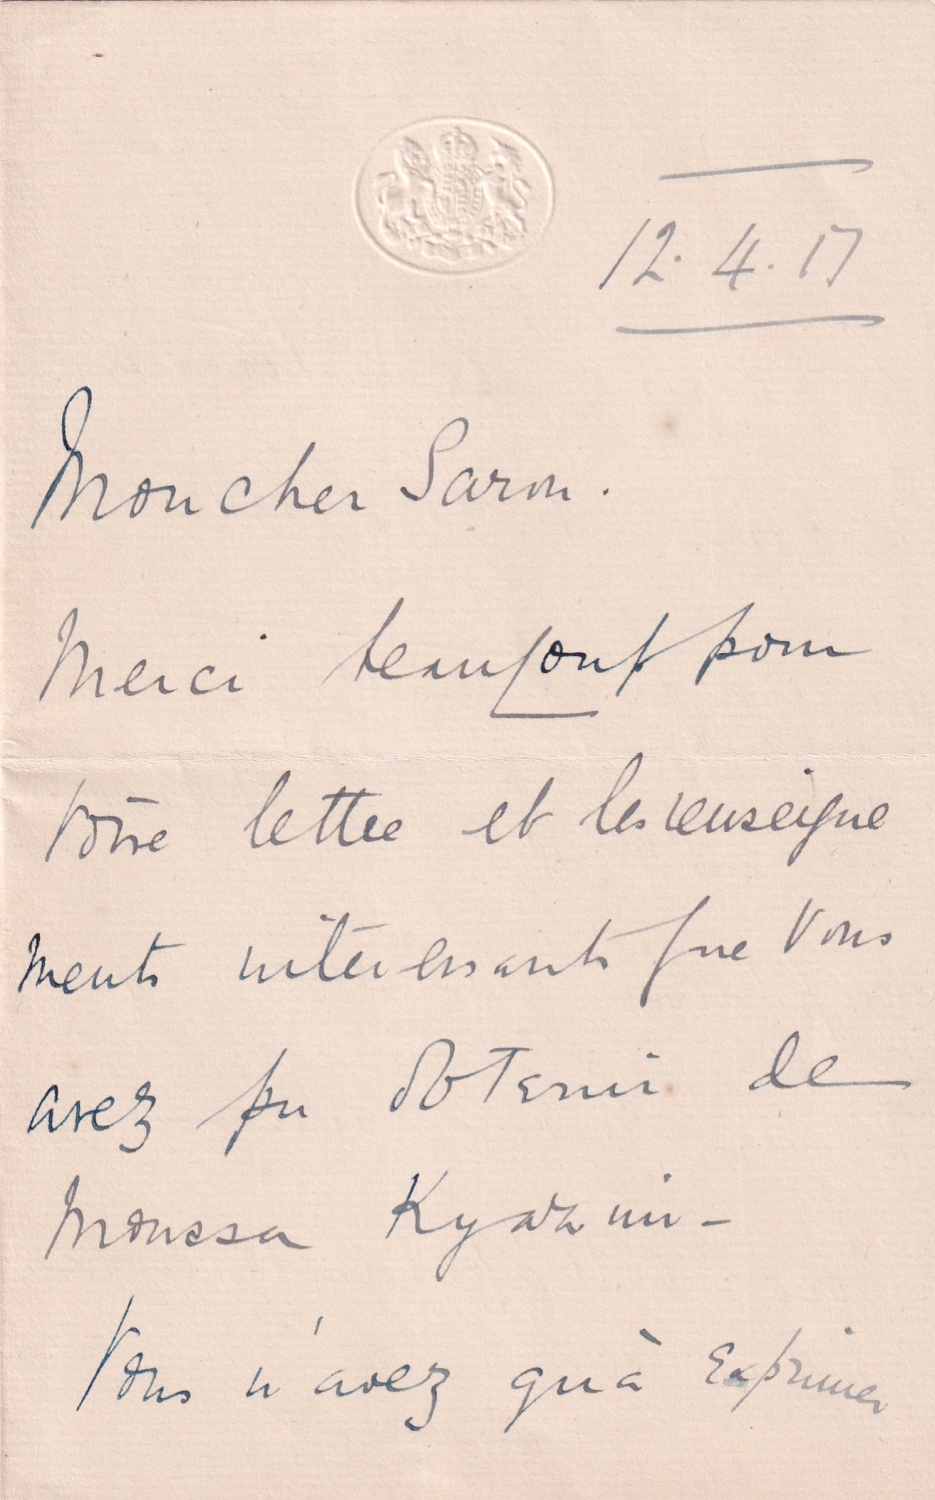 12. 4. 17
Mon cher Saron.
Merci beaucoup pour
votre lettre et les renseigne
ments intéressants que vous
avez pu obtenir de
Moussa
Vous n'avez qu'à exprimer